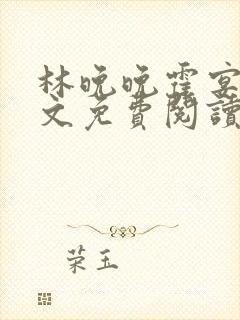 林晚晚霆宴
文免費閱讀
荣玉